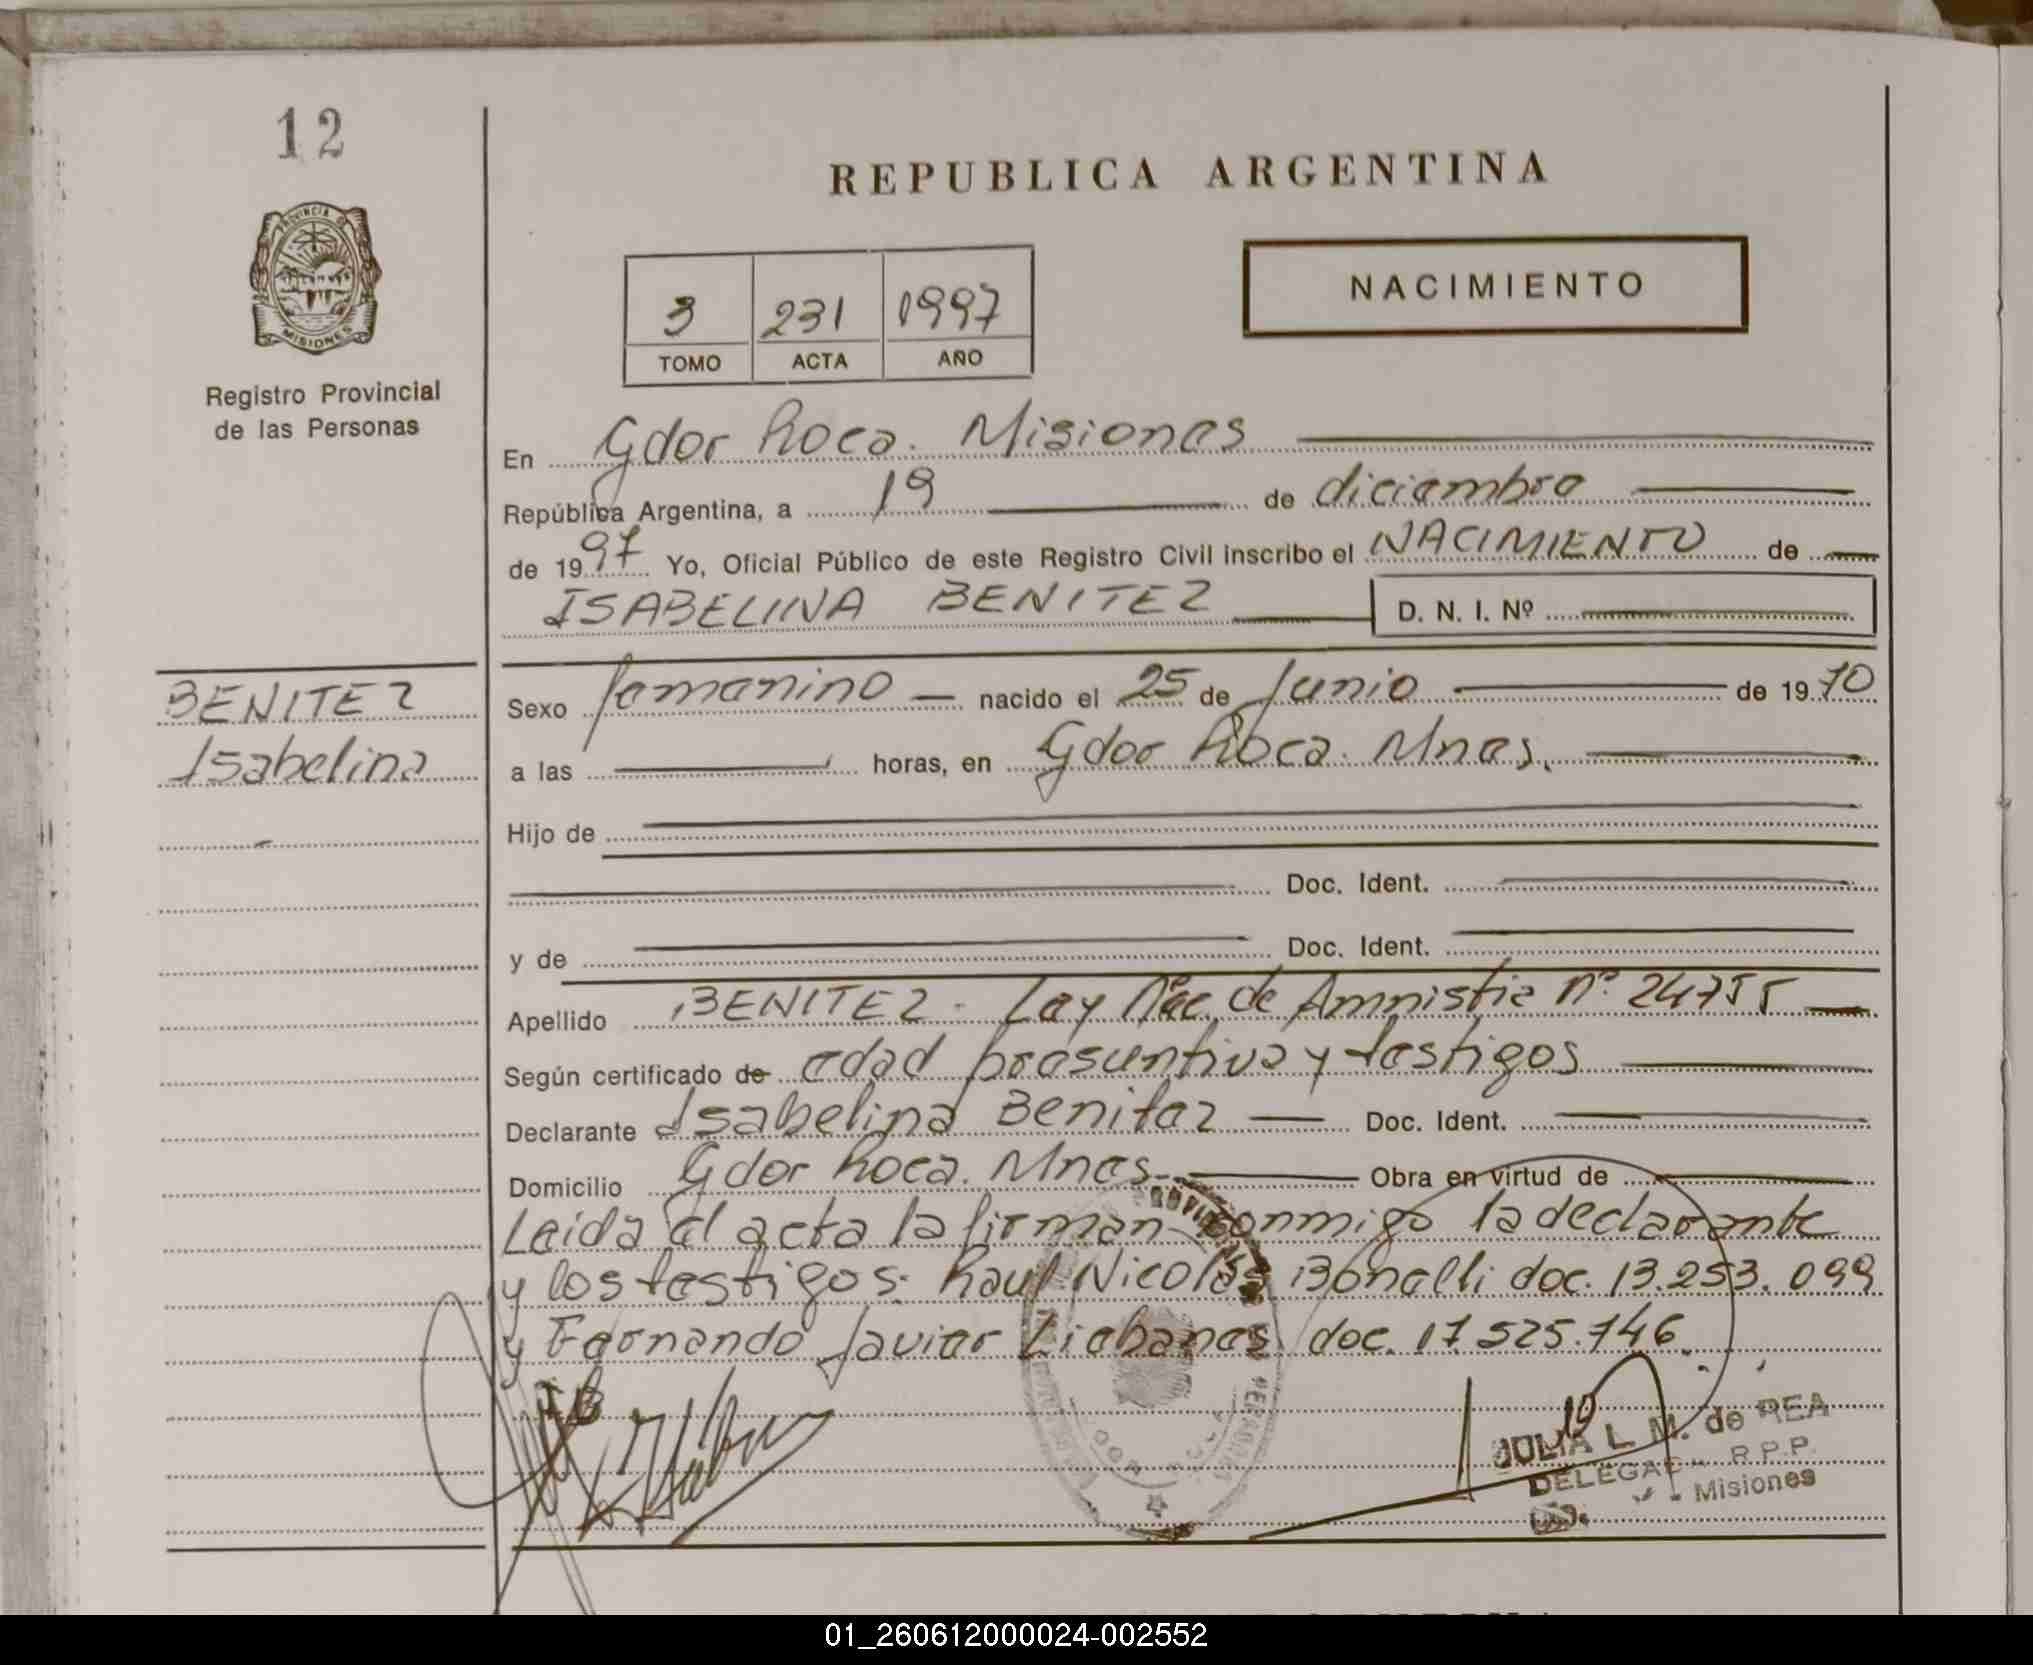 12
REPUBLICA ARGENTINA
PROVINCIA DE
MISIONES
Registro Provincial
de las Personas
3 231 1997
TOMO ACTA AÑO
NACIMIENTO
En Gdor Roca. Misiones
República Argentina, a 19 de diciembre
de 1997 Yo, Oficial Público de este Registro Civil inscribo el NACIMIENTO de
ISABELINA BENITEZ D. N. I. Nº
BENITEZ
Isabelina
Sexo femenino nacido el 25 de Junio de 1970
a las horas, en Gdor Roca. Mnes.
Hijo de
Doc. Ident.
y de Doc. Ident.
Apellido BENITEZ. Ley Nac. de Amnistia nº 24755
Según certificado de edad presuntiva y testigos
Declarante Isabelina Benitez Doc. Ident.
Domicilio Gdor Roca. Mnes. Obra en virtud de
Leida el acta la firman conmigo la declarante
y los testigos: Raul Nicolas Bonelli doc. 13.253.099
y Fernando Javier Liebanes doc. 17.525.746
IB
JULIA L. M. de REA
R.P.P.
Misiones
01_260612000024-002552